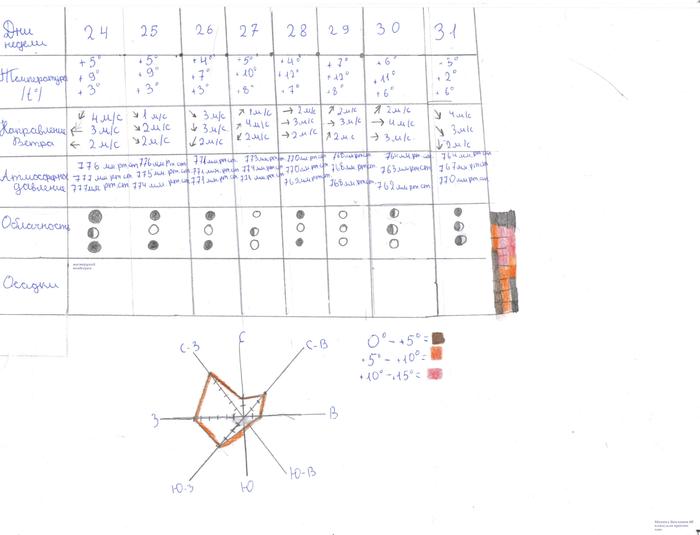 Дни недели 24 25 26 27 28 29 30 31
Температура /t°/
+5° +5° +4° -5° +4° +7° +6° -5°
+9° +9° +7° +10° +12° +12° +11° +2°
+3° +3° +3° +8° +7° +8° +6° +6°
Направление Ветра
4м/с 1м/с 3м/с 1м/с 2м/с 2м/с 2м/с 4м/с
3м/с 2м/с 3м/с 4м/с 2м/с 3м/с 4м/с 3м/с
2м/с 2м/с 2м/с 2м/с 2м/с 2м/с 3м/с 2м/с
Атмосферное давление
776мм рт ст 776мм рт ст 771мм рт ст 773мм рт ст 770мм рт ст 768мм рт ст 764мм рт ст 764мм рт ст
777мм рт ст 775мм рт ст 771мм рт ст 774мм рт ст 770мм рт ст 768мм рт ст 763мм рт ст 767мм рт ст
777мм рт ст 774мм рт ст 771мм рт ст 769мм рт ст 768мм рт ст 762мм рт ст 770мм рт ст
Облачность
Осадки
С
С-З С-В
З В
Ю-З Ю Ю-В
0° - +5° =
+5° - +10° =
+10° - +15° =